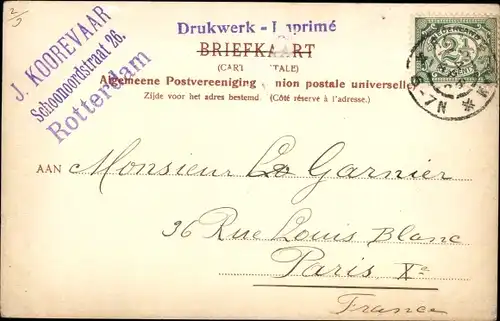 2/9
J. KOOREVAAR
Schoonoordstraat 26.
Rotterdam
Drukwerk - Imprimé
BRIEFKAART
(CART TALE)
Algemeene Postvereeniging nion postale universelle
Zijde voor het adres bestemd. (Côté réservé à l'adresse.)
NEDERLAND
2½
7-N
AAN Monsieur Le Garnier
96 Rue Louis Blanc
Paris Xe
France